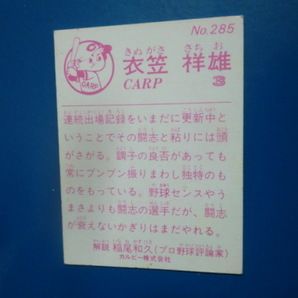 No.285
きぬ がさ さち お
衣笠 祥雄
CARP 3
CARP
連続出場記録をいまだに更新中と
いうことでその闘志と粘りには頭
がさがる。調子の良否があっても
常にブンブン振りまわし独特のも
のをもっている。野球センスやう
まさよりも闘志の選手だが、闘志
が衰えないかぎりはまだやれる。
解説 稲尾和久(プロ野球評論家)
カルビー株式会社